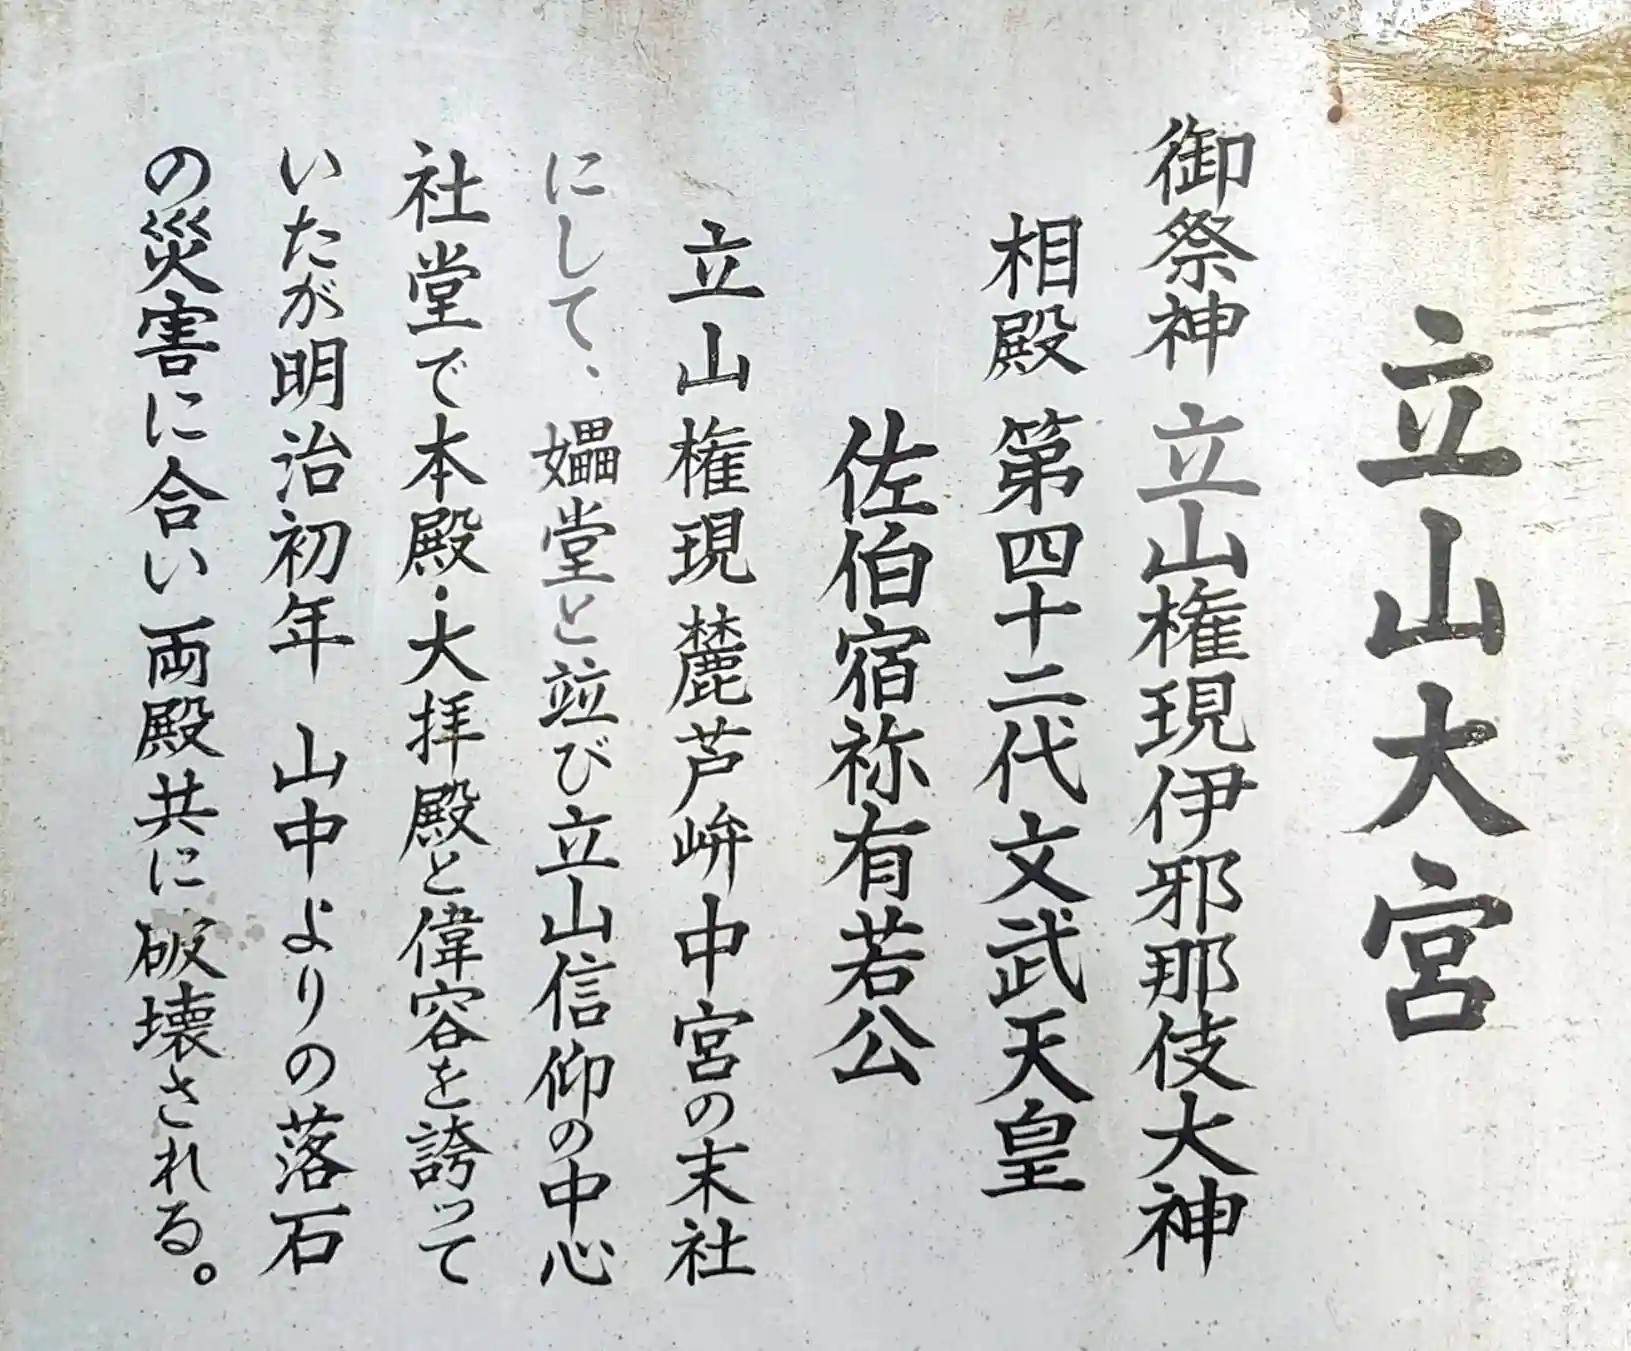 立山大宮
御祭神 立山権現伊邪那伎大神
相殿 第四十二代文武天皇
佐伯宿祢有若公
立山権現麓芦峅中宮の末社
にして、𡢽堂と竝び立山信仰の中心
社堂で本殿・大拝殿と偉容を誇って
いたが明治初年 山中よりの落石
の災害に合い両殿共に破壊される。